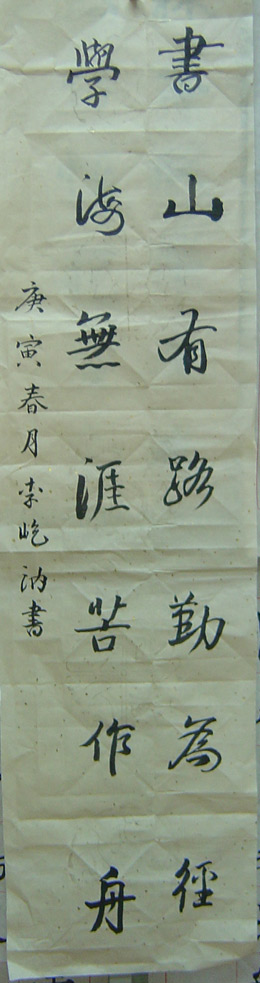 書山有路勤為徑
學海無涯苦作舟
庚寅春月李屹汭書